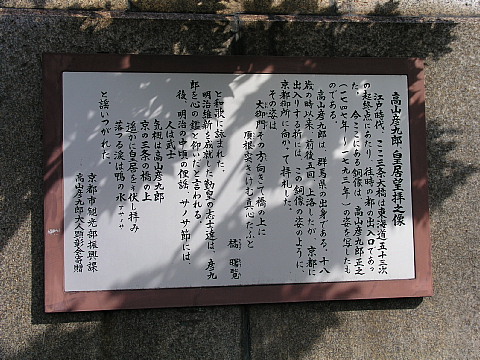 高山彦九郎 皇居望拝之像
江戸時代、ここ三条大橋は東海道五十三次
の起終点にあたり、往時の都の出入口であっ
た。今ここにある銅像は、高山彦九郎正之
(一七四七年〜一七九三年)の姿を写したも
のである。
高山彦九郎は、群馬県の出身である。十八
歳の時以来、前後五回上洛したが、京都に
出入りする前には、この銅像の姿のように、
京都御所に向かって拝礼した。
その姿は
大御門その方向きて橋の上に
頂根突きけむ真心たふと
橘曙覧
と和歌に詠まれた。
明治維新を成就した勤皇の志士達は、彦九
郎を心の鑑と仰いだと言われる。
後、明治の中頃の俚謡、サノサ節には、
人は武士
気概は高山彦九郎
京の三条の橋の上
遥かに皇居をネ伏し拝み
落つる涙は鴨の水 サノサ
と謡いつがれた。
京都市観光部振興課
高山彦九郎大人顕彰会寄贈